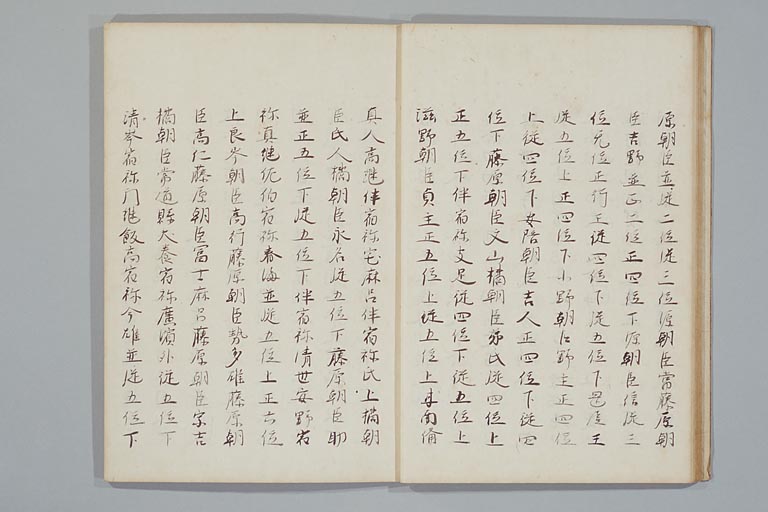 原朝臣並從二位從三位源朝臣常藤原朝
臣吉野並正三位正四位下源朝臣信從三
位无位正行王從四位下從五位下王
從五位上正四位下小野朝臣野主正四位
上從四位下安陪朝臣吉人正四位下從四
位下藤原朝臣文山橘朝臣弟氏從四位上
正五位下伴宿祢友足從四位下從五位上
滋野朝臣貞主正五位上從五位上
真人高継伴宿祢宅麻呂伴宿祢氏上橘朝
臣氏人橘朝臣永名從五位下藤原朝臣助
並正五位下從五位下伴宿祢清世安野宿
祢真継佐伯宿祢春海並從五位上正六位
上良岑朝臣高行藤原朝臣勢多雄藤原朝
臣高仁藤原朝臣冨士麻呂藤原朝臣宗吉
橘朝臣常道縣犬養宿祢廣濱外從五位下
清岑宿祢門継飯高宿祢今雄並從五位下